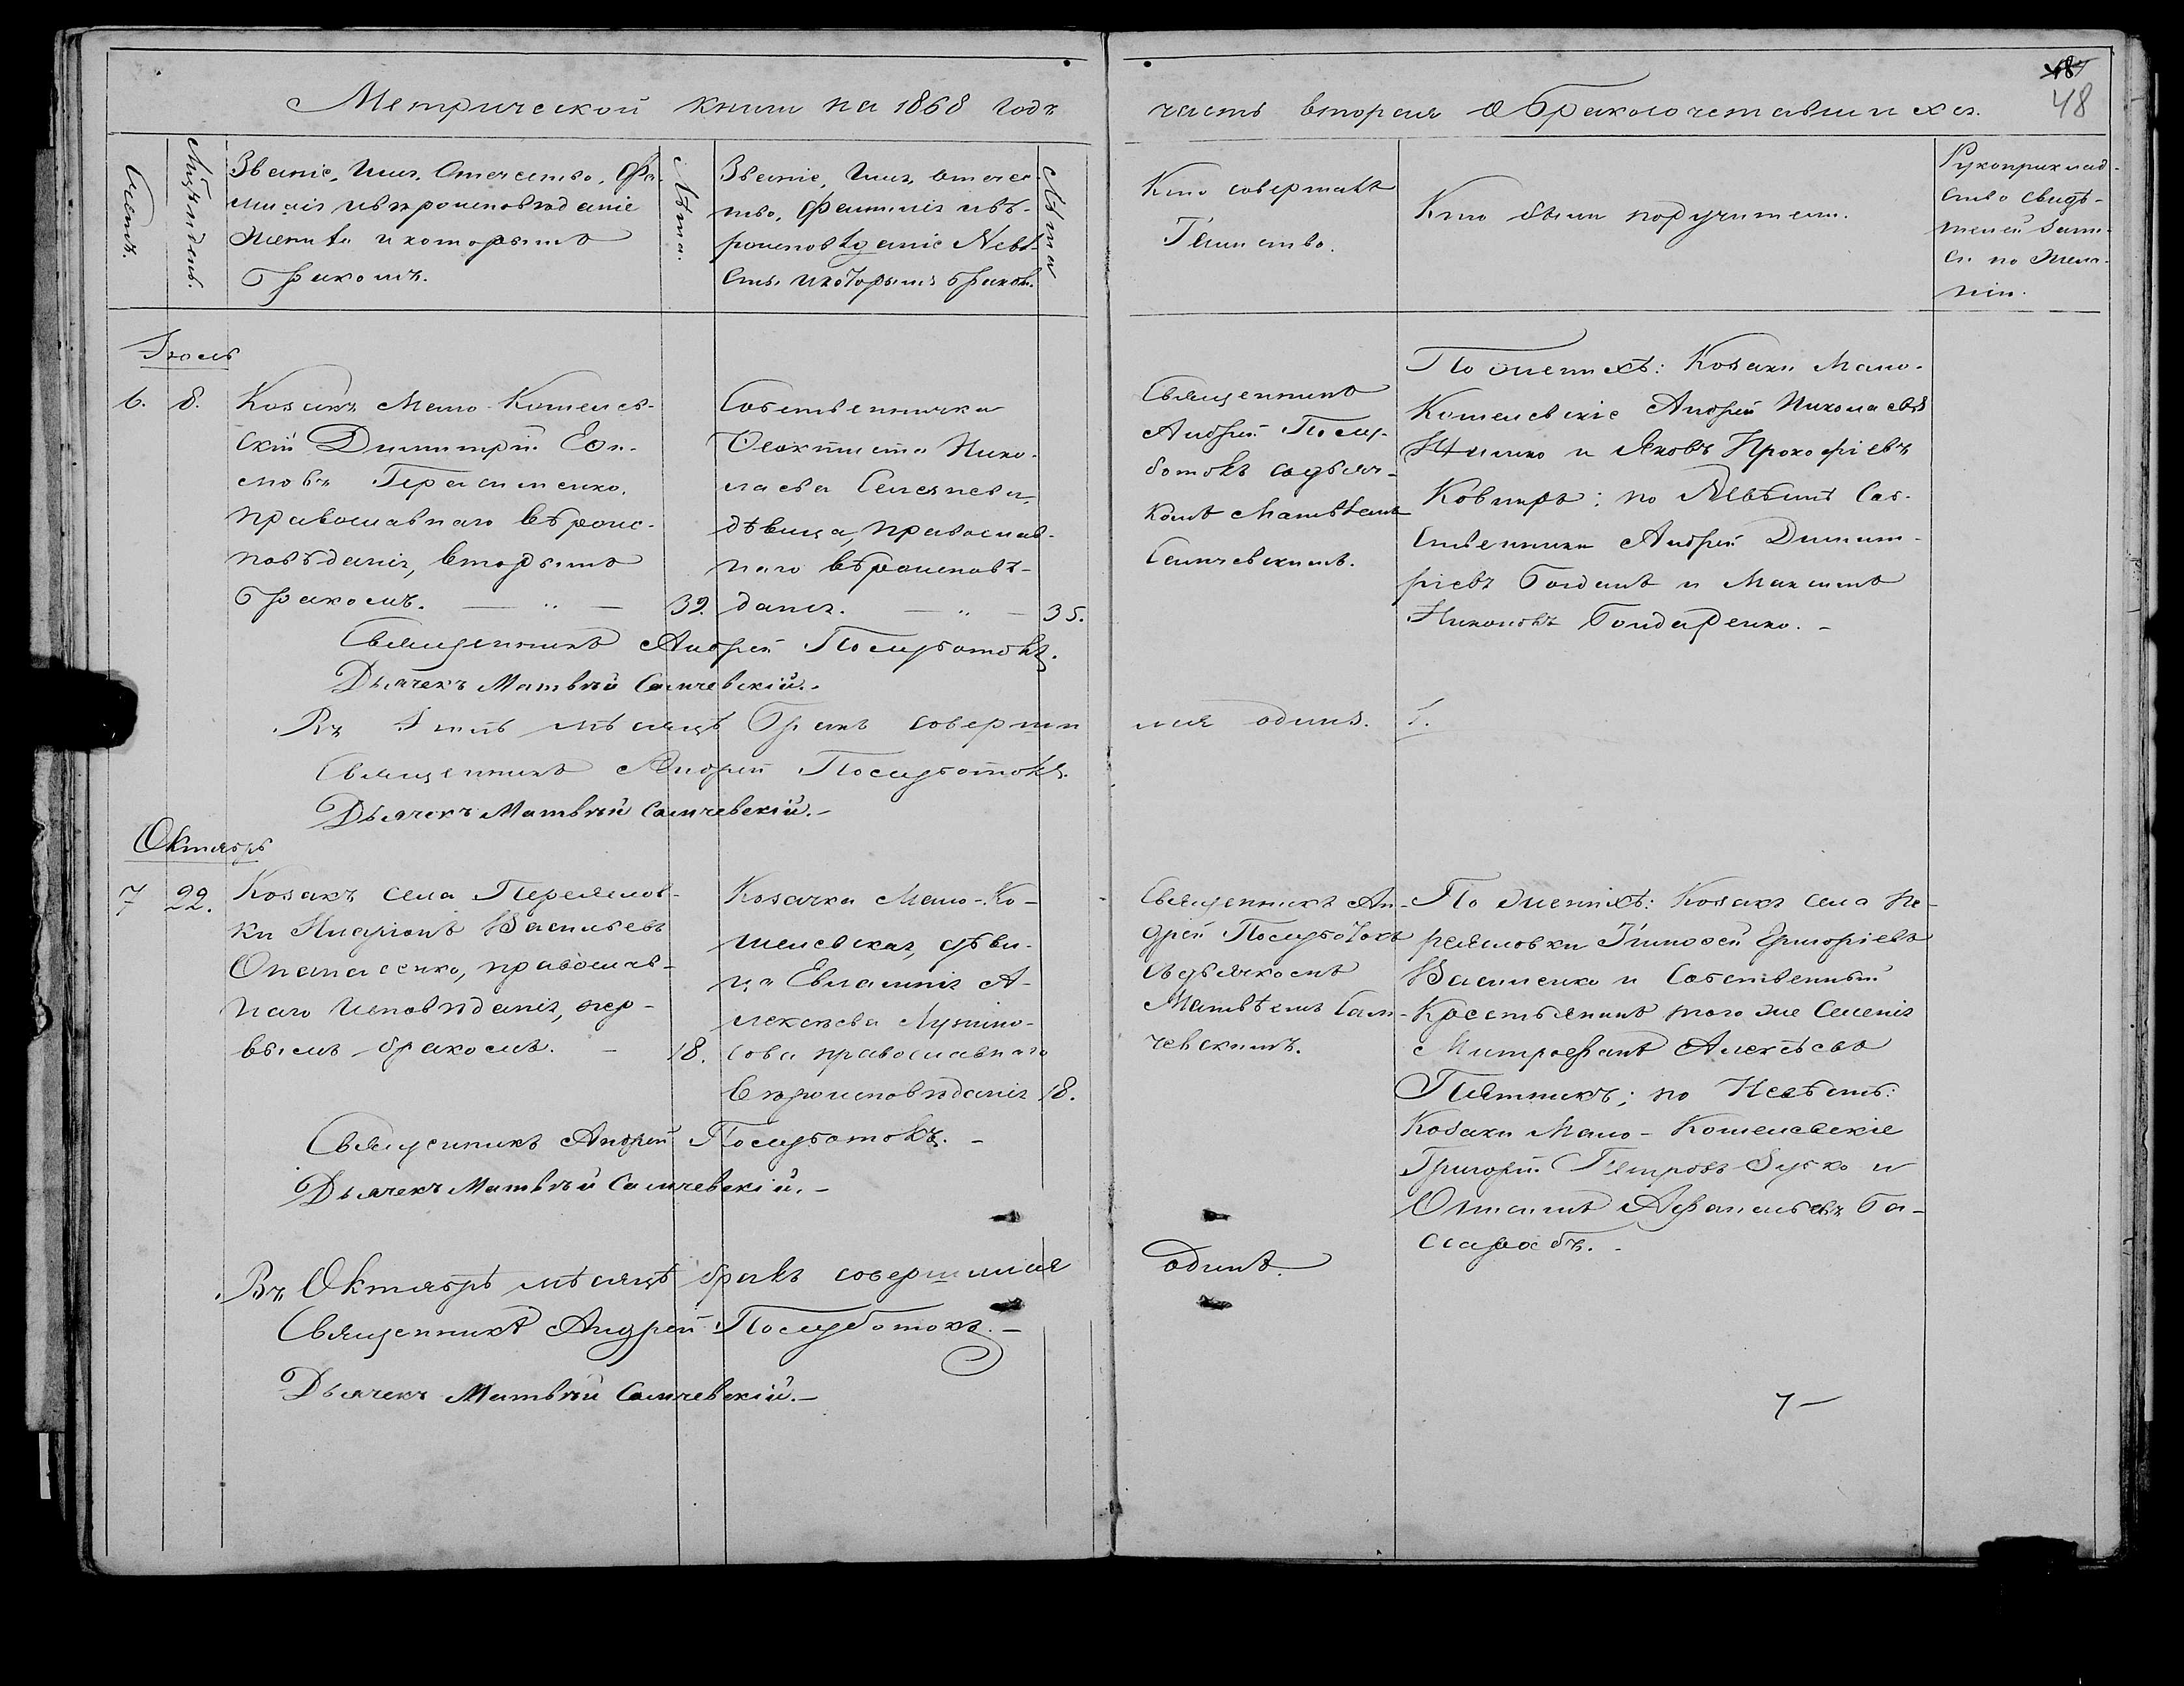 48
Метрической книги на 1868 годъ
часть вторая о бракосочетавшихся.
Счетъ.
Мѣс. и день.
Званіе, имя, отечество, фа-
милія и вѣроисповѣданіе
жениха и которымъ
бракомъ.
Лѣта.
Званіе, имя, отечес-
тво, фамилія и вѣ-
роисповѣданіе невѣ-
сты, и которымъ бракомъ.
Лѣта
Кто совершалъ
Таинство.
Кто были поручители.
Рукоприклад-
ство свидѣ-
телей запи-
си по жела-
нію.
Іюль
6.
8.
Козакъ Мало-Кошелев-
скій Димитрій
Герасименко,
православнаго вѣроис-
повѣданія, вторымъ
бракомъ. — „ —
39.
Собственничка
Ѳеоктиста Нико-
лаева Селезнева,
дѣвица, православ-
наго вѣроисповѣ-
данія. — „ —
35.
Священникъ
Андрей Полу-
ботокъ съ дьяч-
комъ Матвѣемъ
Самчевскимъ.
По женихѣ: Козаки Мало-
Кошелевскіе Андрей Николаевъ
и Яковъ Прокофіевъ
; по невѣстѣ Соб-
ственники Андрей Димит-
ріевъ Богданъ и Максимъ
Никоновъ Бондаренко. –
Священникъ Андрей Полуботокъ.
Дьячекъ Матвѣй Самчевскій. –
Въ Іюлѣ мѣсяцѣ бракъ соверши
лся одинъ. 1.
Священникъ Андрей Полуботокъ.
Дьячекъ Матвѣй Самчевскій. –
Октябрь
7
22.
Козакъ села Перелюв-
ки Иларіонъ Васильевъ
Опанасенко, православ-
наго исповѣданія, пер-
вымъ бракомъ. –
18.
Козачка Мало-Ко-
шелевская, дѣви-
ца Евлампія А-
лексѣева
сова православнаго
вѣроисповѣданія
18.
Священникъ Ан-
дрей Полуботокъ
съ дьячкомъ
Матвѣемъ Сам-
чевскимъ.
По женихѣ: Козакъ села Пе-
релювки Тимофей Григоріевъ
Василенко и Собственный
Крестьянинъ того же Селенія
Митрофанъ Алексѣевъ
Пятникъ; по Невѣстѣ:
Козаки Мало-Кошелевскіе
Григорій Петровъ Зубко и
Афанасьевъ Ба-
Священникъ Андрей Полуботокъ. –
Дьячекъ Матвѣй Самчевскій. –
Въ Октябрѣ мѣсяцѣ бракъ совершился
одинъ.
Священникъ Андрей Полуботокъ. –
Дьячекъ Матвѣй Самчевскій. –
7 –